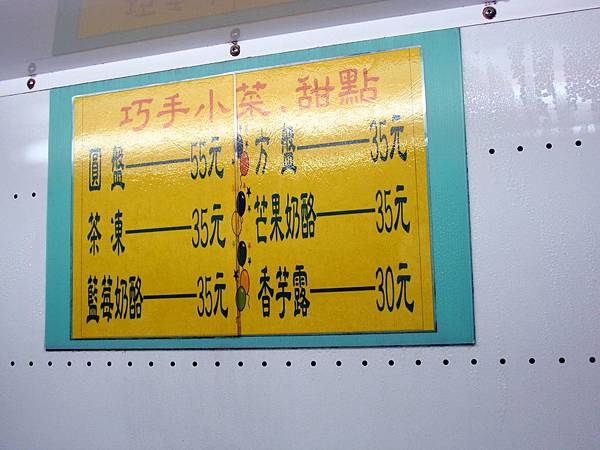 巧手小菜、甜點
圓盤——55元
方盤——35元
茶凍——35元
芒果奶酪——35元
藍莓奶酪——35元
香芋露——30元